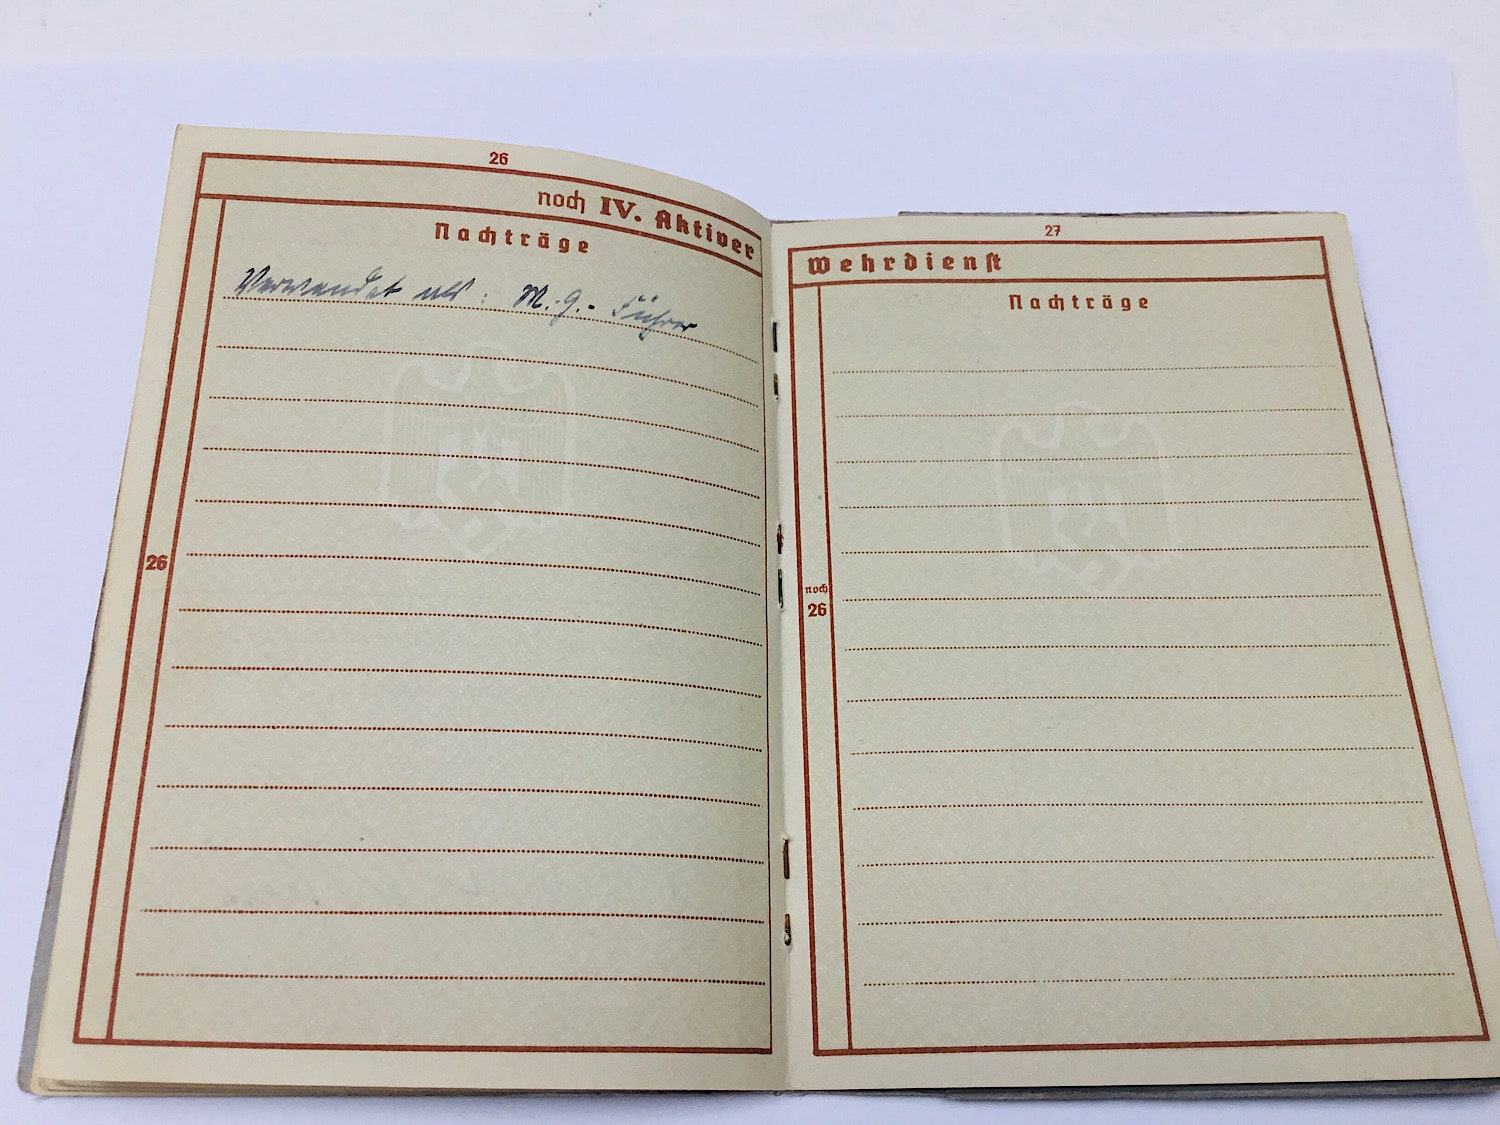 26
noch IV. Aktiver
Nachträge
Verwendet als: M.-G.- Führer
26
27
Wehrdienst
Nachträge
noch
26